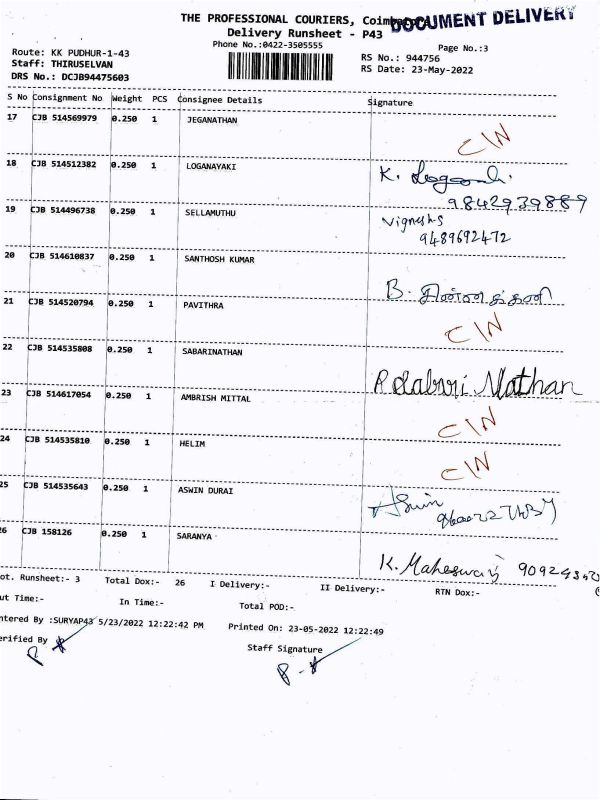 THE PROFESSIONAL COURIERS, Coimbatore
DOCUMENT DELIVERY
Delivery Runsheet - P43
Phone No.:0422-3505555
Page No.:3
Route: KK PUDHUR-1-43
RS No.: 944756
Staff: THIRUSELVAN
RS Date: 23-May-2022
DRS No.: DCJB94475603
S No Consignment No Weight PCS Consignee Details Signature
17 CJB 514569979 0.250 1 JEGANATHAN C\N
18 CJB 514512382 0.250 1 LOGANAYAKI K.
9842939889
19 CJB 514496738 0.250 1 SELLAMUTHU Vignesh S
9489692472
20 CJB 514610837 0.250 1 SANTHOSH KUMAR B.
21 CJB 514520794 0.250 1 PAVITHRA C\N
22 CJB 514535808 0.250 1 SABARINATHAN R Sabari Nathan
23 CJB 514617054 0.250 1 AMBRISH MITTAL C\N
24 CJB 514535810 0.250 1 HELIM C\N
25 CJB 514535643 0.250 1 ASWIN DURAI Aswin
26 CJB 158126 0.250 1 SARANYA K. Maheswari
ot. Runsheet:- 3 Total Dox:- 26 I Delivery:- II Delivery:- RTN Dox:-
ut Time:- In Time:- Total POD:-
ntered By :SURYAP43 5/23/2022 12:22:42 PM Printed On: 23-05-2022 12:22:49
erified By Staff Signature